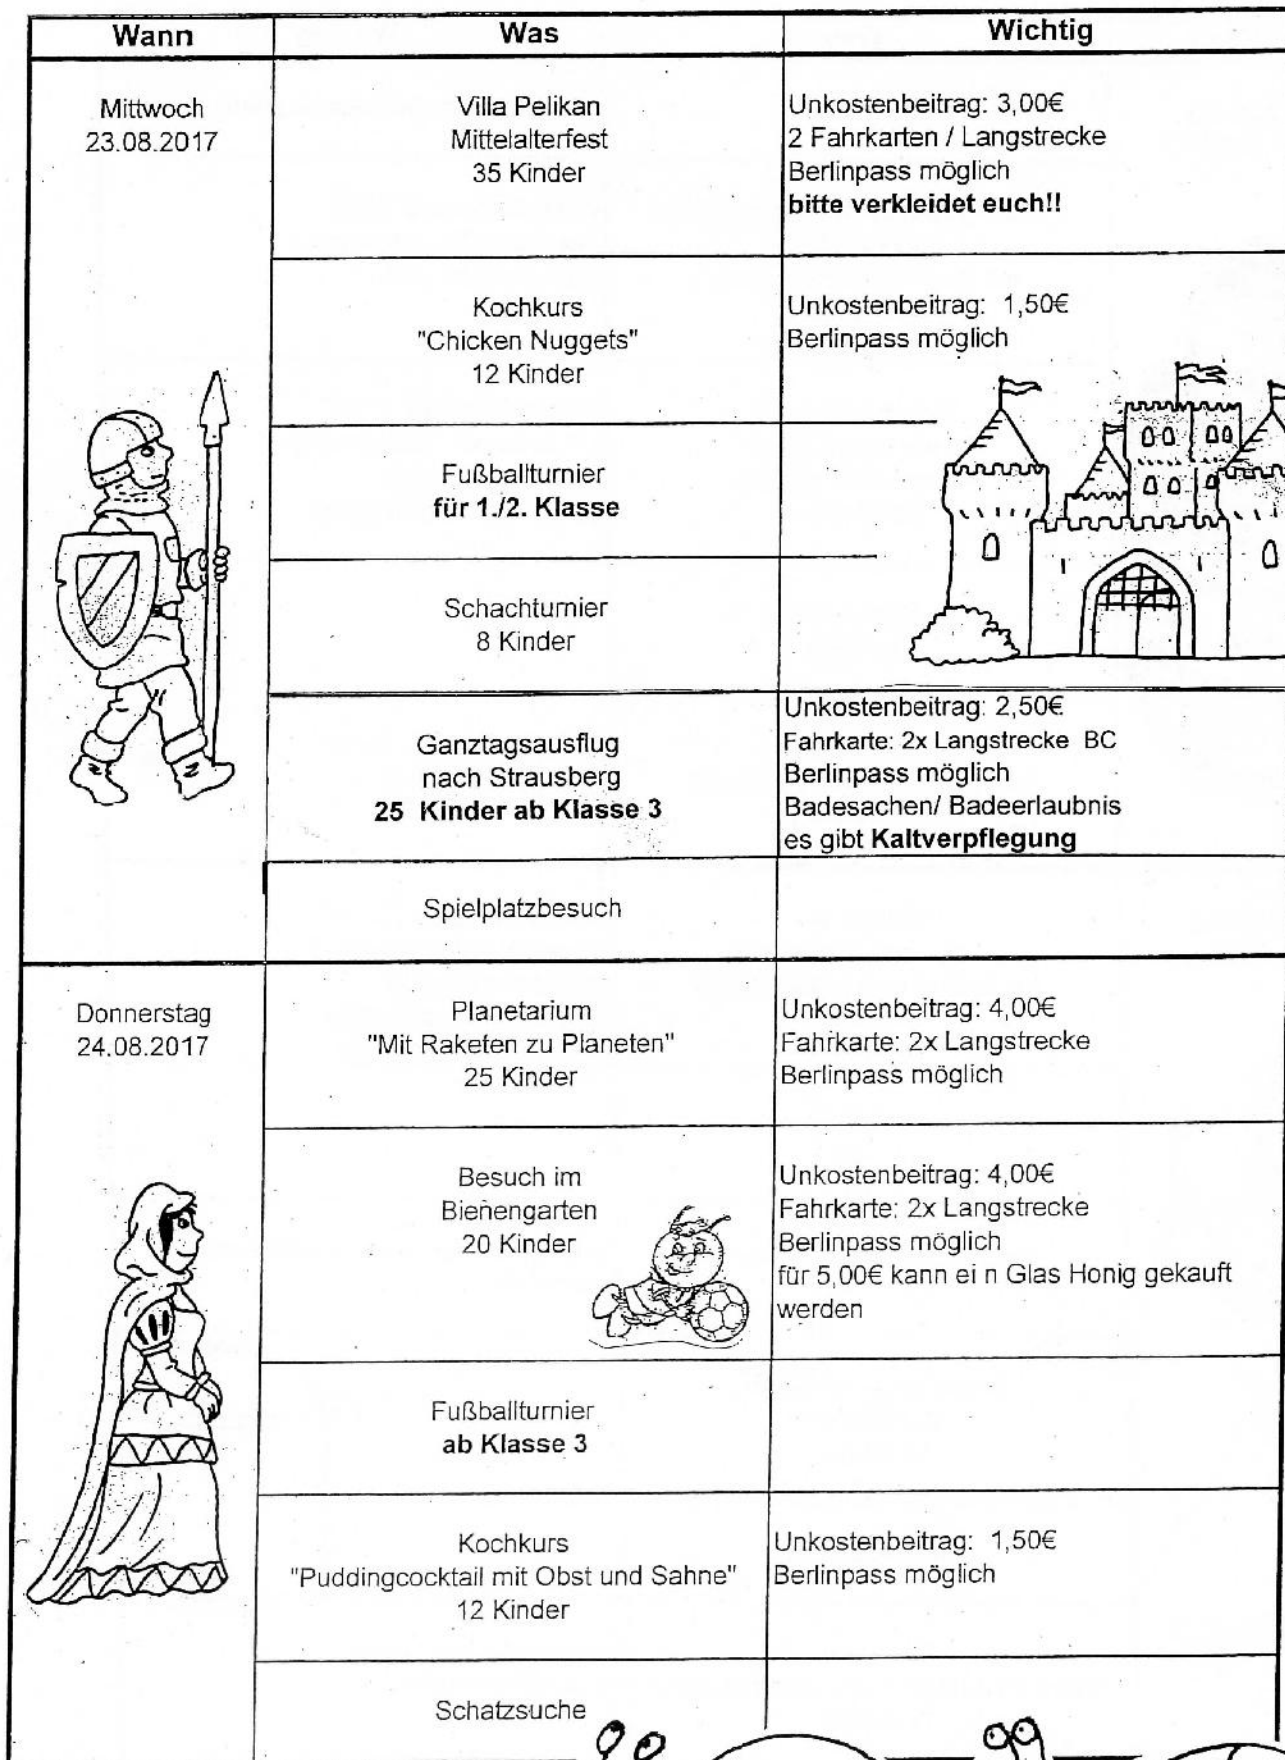 Wann Was Wichtig
Mittwoch
23.08.2017
Villa Pelikan
Mittelalterfest
35 Kinder
Unkostenbeitrag: 3,00€
2 Fahrkarten / Langstrecke
Berlinpass möglich
bitte verkleidet euch!!
Kochkurs
"Chicken Nuggets"
12 Kinder
Unkostenbeitrag: 1,50€
Berlinpass möglich
Fußballturnier
für 1./2. Klasse
Schachturnier
8 Kinder
Ganztagsausflug
nach Strausberg
25 Kinder ab Klasse 3
Unkostenbeitrag: 2,50€
Fahrkarte: 2x Langstrecke BC
Berlinpass möglich
Badesachen/ Badeerlaubnis
es gibt Kaltverpflegung
Spielplatzbesuch
Donnerstag
24.08.2017
Planetarium
"Mit Raketen zu Planeten"
25 Kinder
Unkostenbeitrag: 4,00€
Fahrkarte: 2x Langstrecke
Berlinpass möglich
Besuch im
Bienengarten
20 Kinder
Unkostenbeitrag: 4,00€
Fahrkarte: 2x Langstrecke
Berlinpass möglich
für 5,00€ kann ei n Glas Honig gekauft
werden
Fußballturnier
ab Klasse 3
Kochkurs
"Puddingcocktail mit Obst und Sahne"
12 Kinder
Unkostenbeitrag: 1,50€
Berlinpass möglich
Schatzsuche